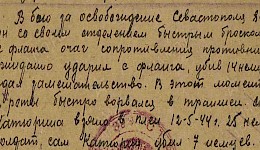 В бою за освобождение Севастополя 8-
он со своим отделением быстрым броском
с фланга очаг сопротивления противни
жидано ударил с фланга, убив 14 нем
дал замешательство. В этот момен
роты быстро ворвался в траншеи
взяло в плен 12-5-44г. 25 не
солдат, сам убил 7 немцев.